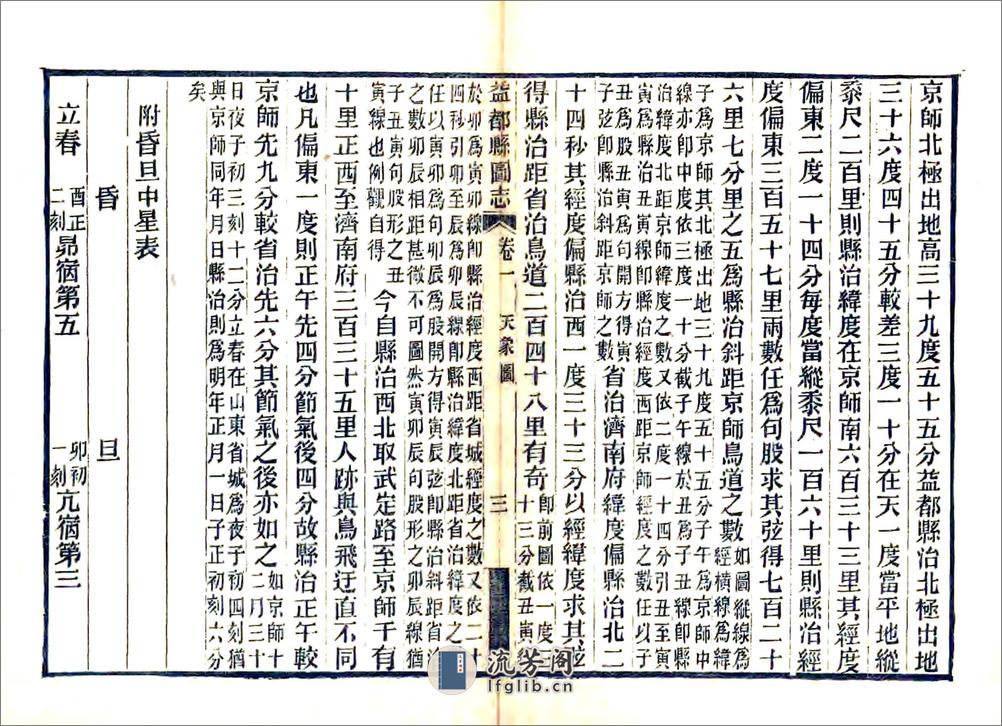 京師北極出地高三十九度五十五分益都縣治北極出地
三十六度四十五分較差三度一十分在天一度當平地縱
黍尺二百里則縣治緯度在京師南六百三十三里其經度
偏東二度一十四分每度當縱黍尺一百六十里則縣治經
度偏東三百五十七里兩數任爲句股求其弦得七百二十
六里七分里之五爲縣治斜距京師鳥道之數
如圖縱線爲
經橫線爲緯
子爲京師其北極出地三十九度五十五分子午爲京師中
線亦卽中度依三度一十分截子午線於丑爲子丑線卽縣
治緯度北距京師緯度之數又依二度一十四分引丑至寅
寅爲縣治丑寅線卽縣治經度西距京師經度之數任以子
丑爲股丑寅爲句開方得寅
子弦卽縣治斜距京師之數
省治濟南府緯度偏縣治北二
十四秒其經度偏縣治西一度三十三分以經緯度求其弦
得縣治距省治鳥道二百四十八里有奇
卽前圖依一度三
十三分截丑寅線
益都縣圖志 卷一 天象圖 三
於卯爲寅卯線卽縣治經度西距省城經度之數又依二十
四秒引卯至辰爲卯辰線卽縣治緯度北距省治緯度之數
任以寅卯爲句卯辰爲股開方得寅辰弦卽縣治斜距省治
之數以卯辰相距甚微不可圖然寅卯辰句股形之卯辰線猶
子丑寅句股形之丑
寅線也例觀自得
今自縣治西北取武定路至京師千有
十里正西至濟南府三百三十五里人跡與鳥飛迂直不同
也凡偏東一度則正午先四分節氣後四分故縣治正午較
京師先九分較省治先六分其節氣之後亦如之
如京師十
二月三十
日夜子初三刻十二分立春在山東省城爲夜子初四刻猶
與京師同年月日縣治則爲明年正月一日子正初刻六分
矣
附昏旦中星表
昏 旦
立春 酉正二刻 昴宿第五 卯初一刻 亢宿第三
流芳閣
lfglib.cn